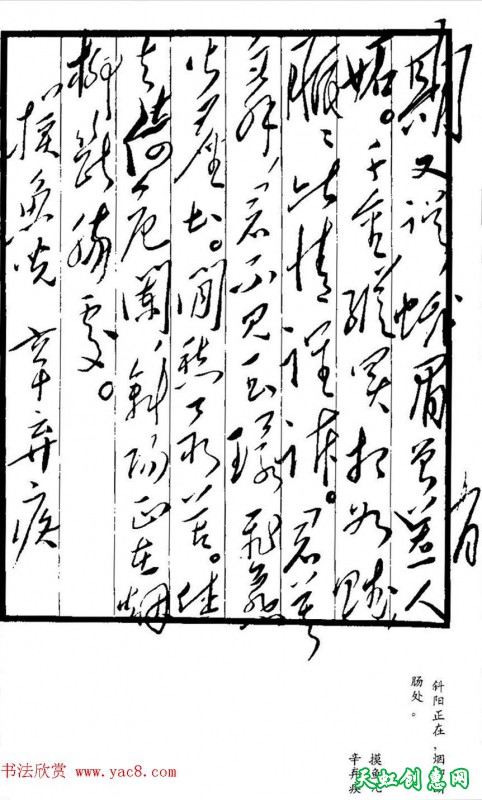 期又误,蛾眉曾有人
妬。千金纵买相如赋
脉々此情谁诉。「君莫
舞,「君不见玉环飞燕
皆尘土。闲愁最苦。休
去倚危阑,斜阳正在烟
柳断肠处。
摸鱼儿 辛弃疾
斜阳正在,烟 断
肠处。
摸鱼儿
辛弃疾
书法欣赏 www.yac8.com
天虹创意网